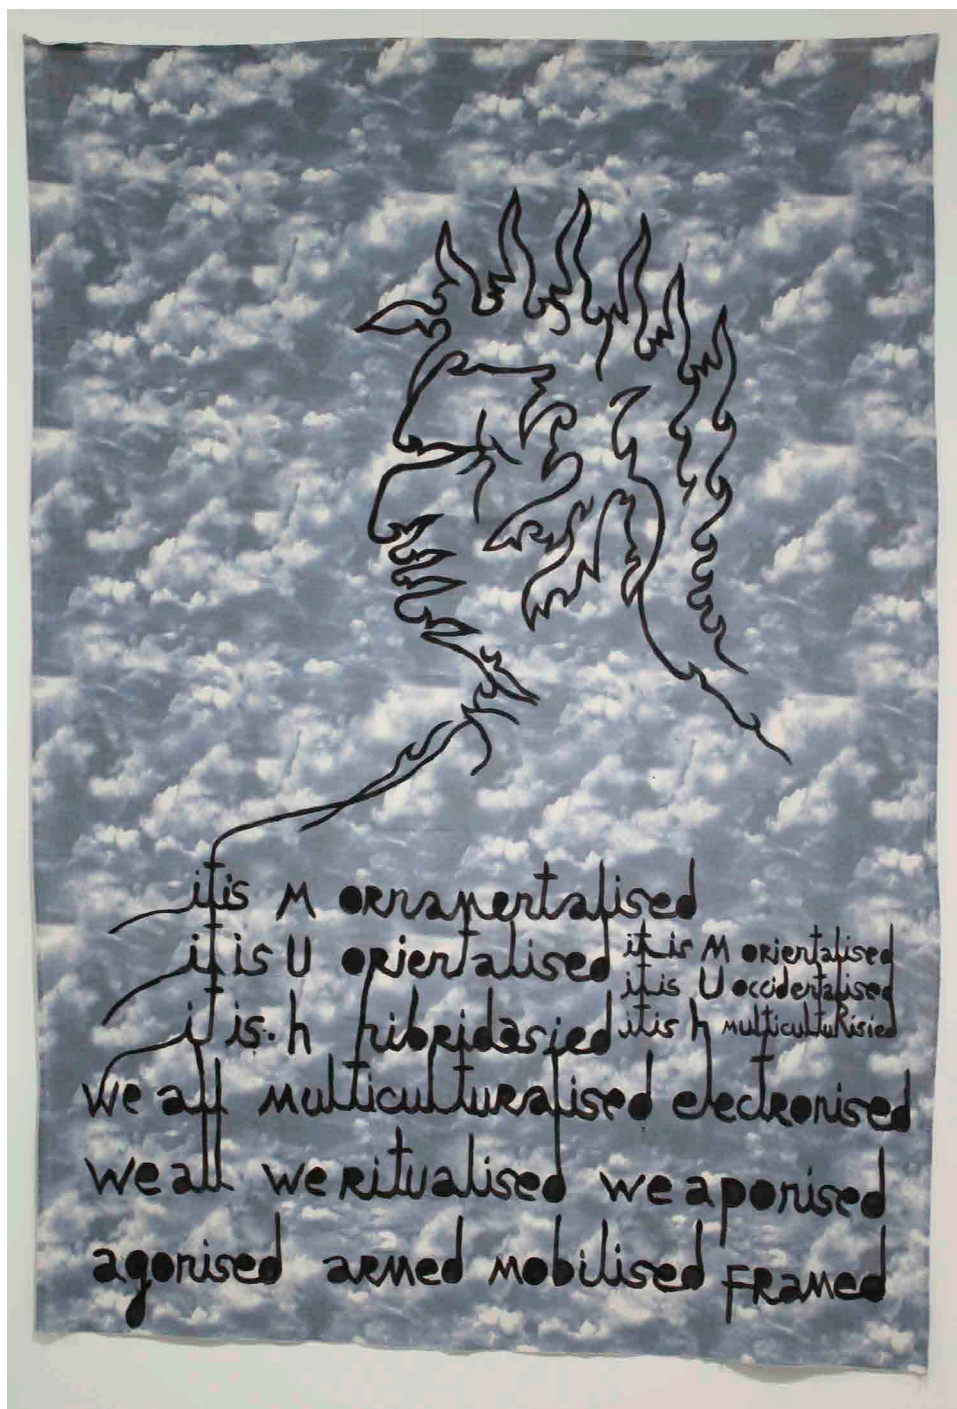 it is M ornamentalised
it is U orientalised
it is M orientalised
it is U occidentalised
it is. h hibridasied
it is h multiculturisied
we all multiculturalised electronised
we all we ritualised we aponised
agonised armed mobilised framed